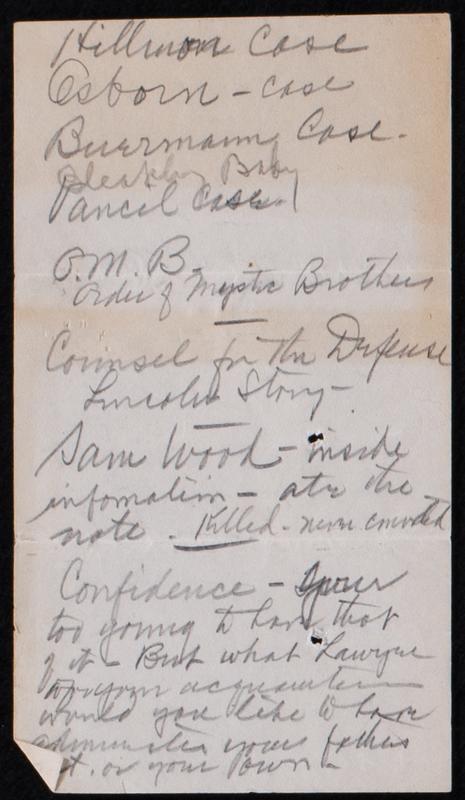 Hillmon Case
Osborn - case
Buermann Case.
Bleakley Baby
Pancil Case.
O. M. B.
Order of Mystic Brothers
Counsel for the Defense
Lincoln Story -
Sam Wood - inside
information - ate the
note. Killed - never convicted
Confidence - your
too young to have that
of it - But what Lawyer
your acquaintance
would you like to have
administer your father's
or your own -